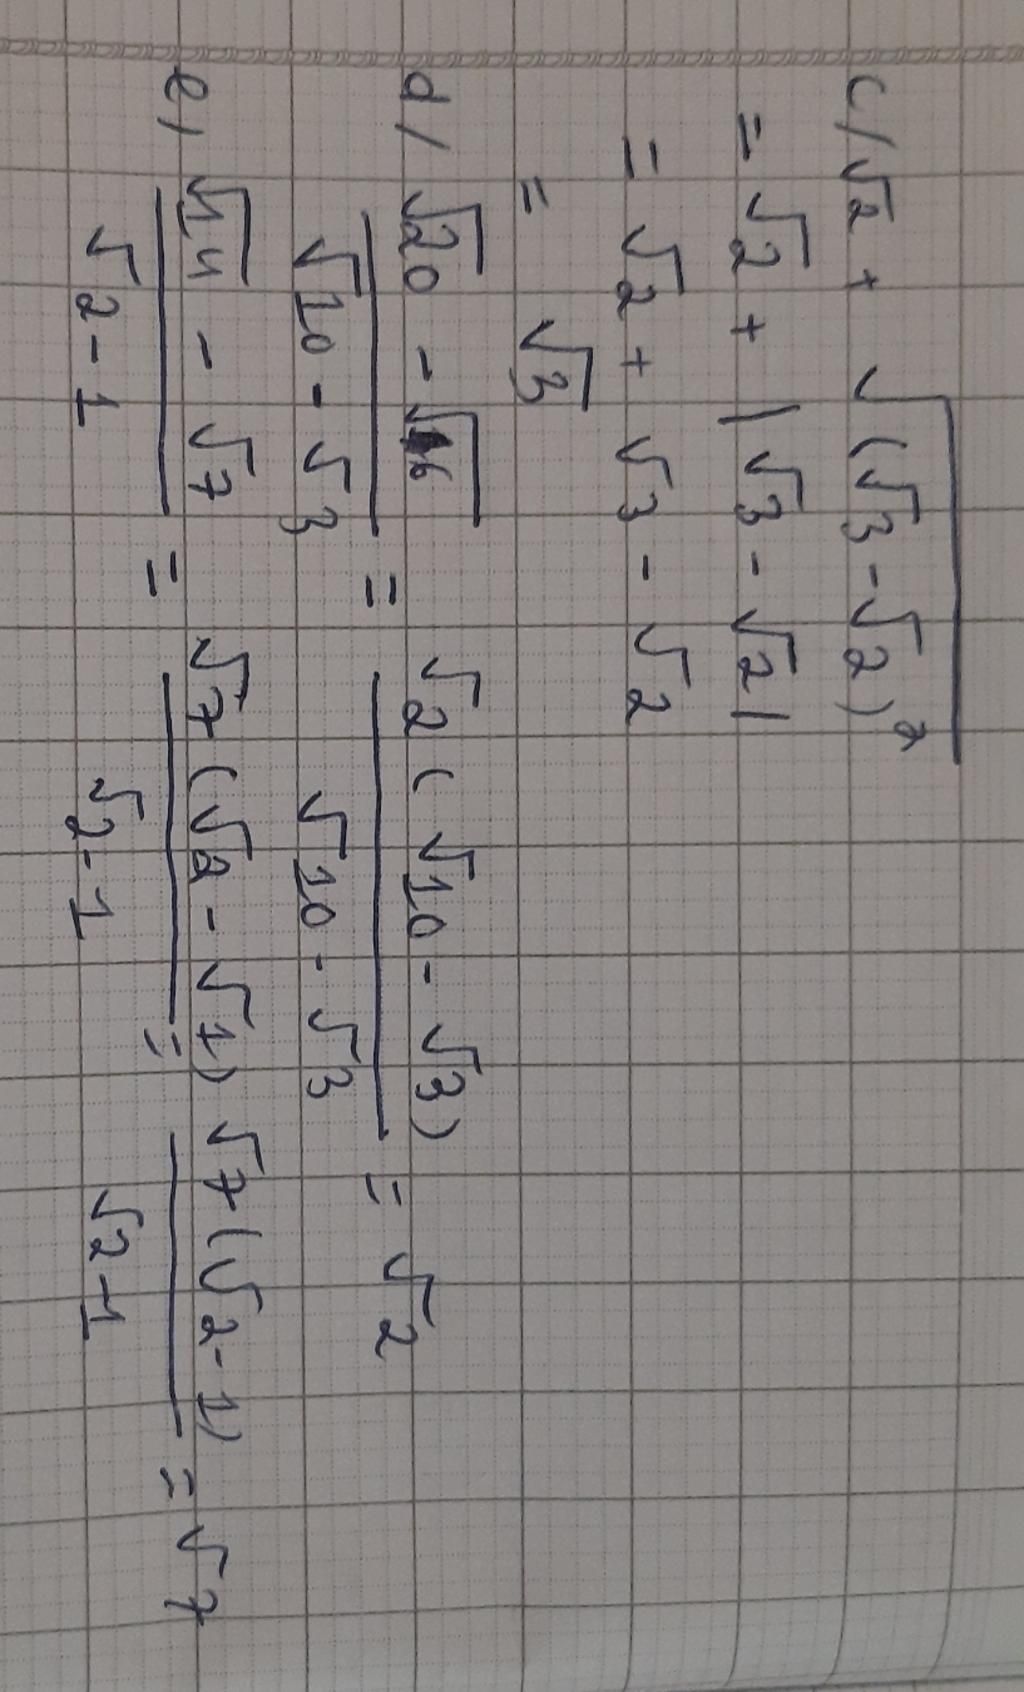 c/ √2 + √(√3 - √2)²
= √2 + |√3 - √2|
= √2 + √3 - √2
= √3
d/ (√20 - √6)/(√10 - √3) = √2(√10 - √3)/(√10 - √3) = √2
e/ (√14 - √7)/(√2 - 1) = √7(√2 - √1)/(√2 - 1) = √7(√2 - 1)/(√2 - 1) = √7